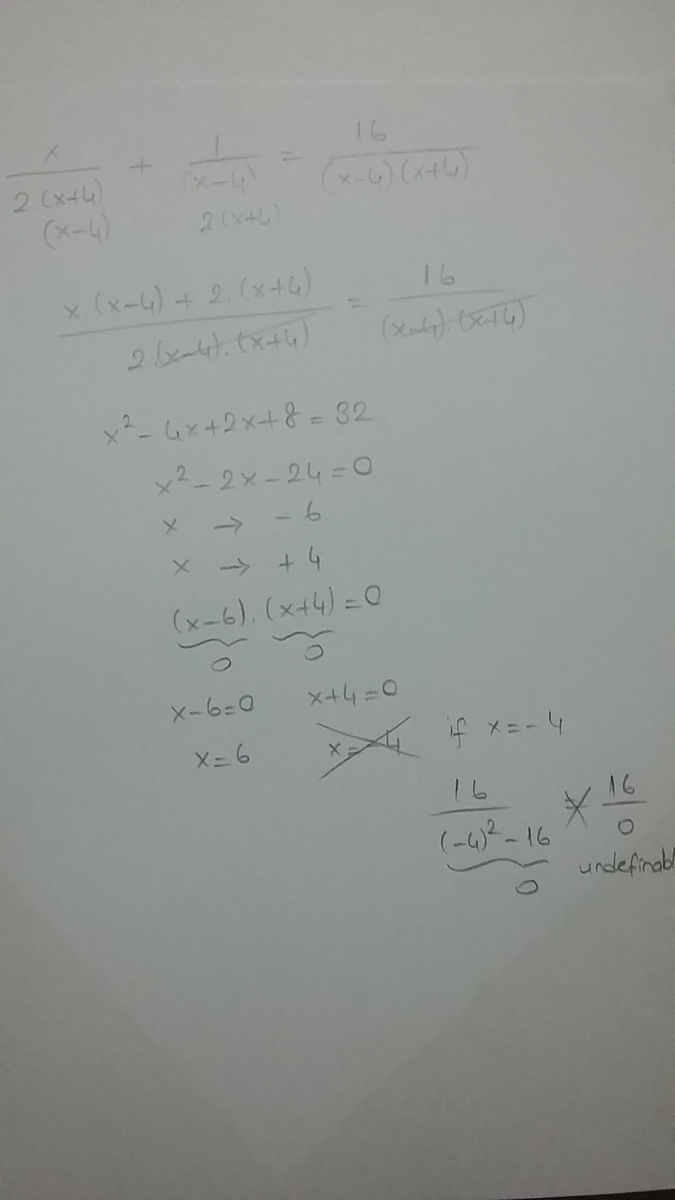 x/2.(x+4) + 1/(x-4) = 16/(x-4).(x+4)
(x-4) 2.(x+4)
x.(x-4) + 2.(x+4)/2.(x-4).(x+4) = 16/(x-4).(x+4)
x² - 4x + 2x + 8 = 32
x² - 2x - 24 = 0
x → - 6
x → + 4
(x-6).(x+4) = 0
0 0
x-6=0 x+4=0
x=6 x=-4
if x=-4
16/(-4)²-16 = 16/0
0
undefinabl